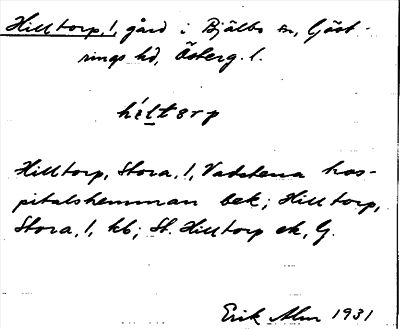 Hilltorp, 1, gård i Bjälbo sn, Göst-
rings hd, Österg. l.
héltærp
Hilltorp, Stora, 1, Vadstena hos-
pitalshemman bek; Hilltorp,
Stora, 1, kb; St. Hilltorp ek, G.
Erik Alm 1931